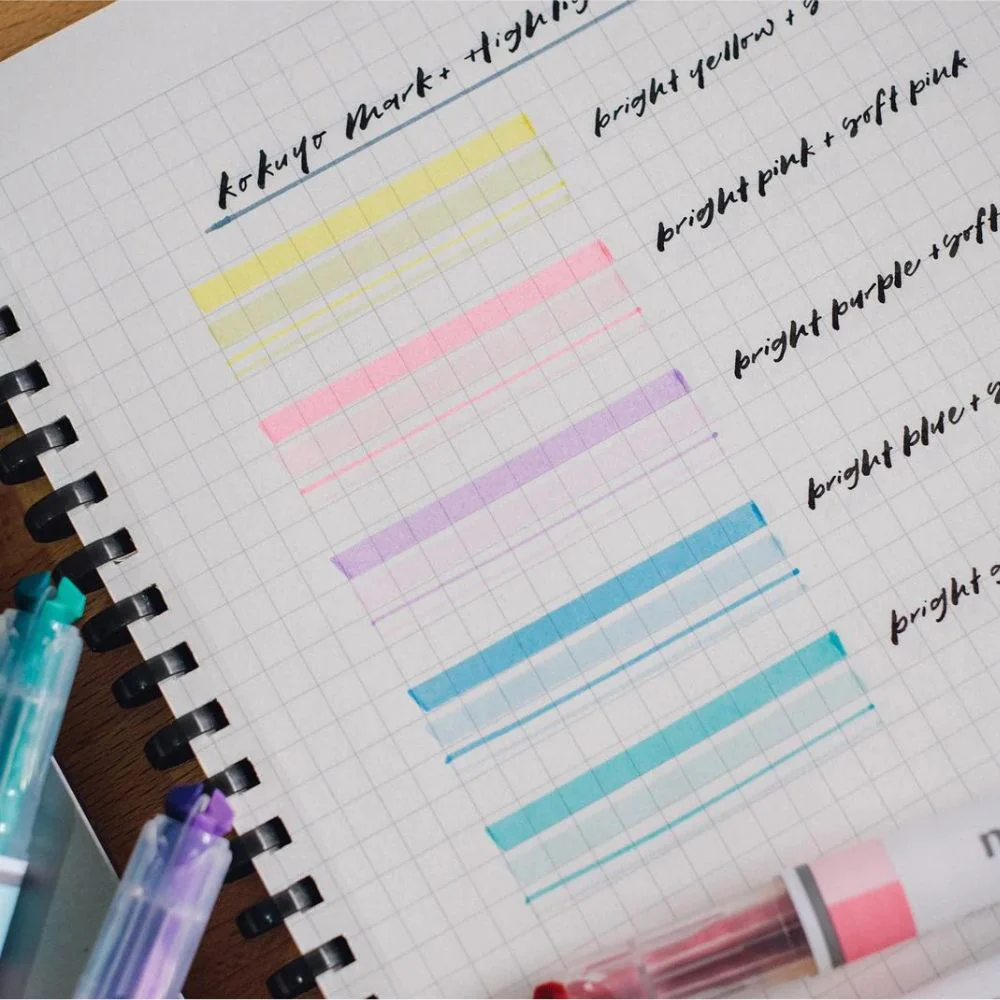 kokuyo mark+
bright yellow +
bright pink + soft pink
bright purple + soft
bright blue +
bright